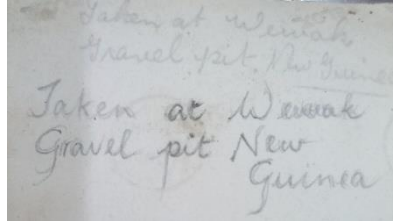 Taken at Wewak
Gravel pit New Guinea
Taken at Wewak
Gravel pit New
Guinea